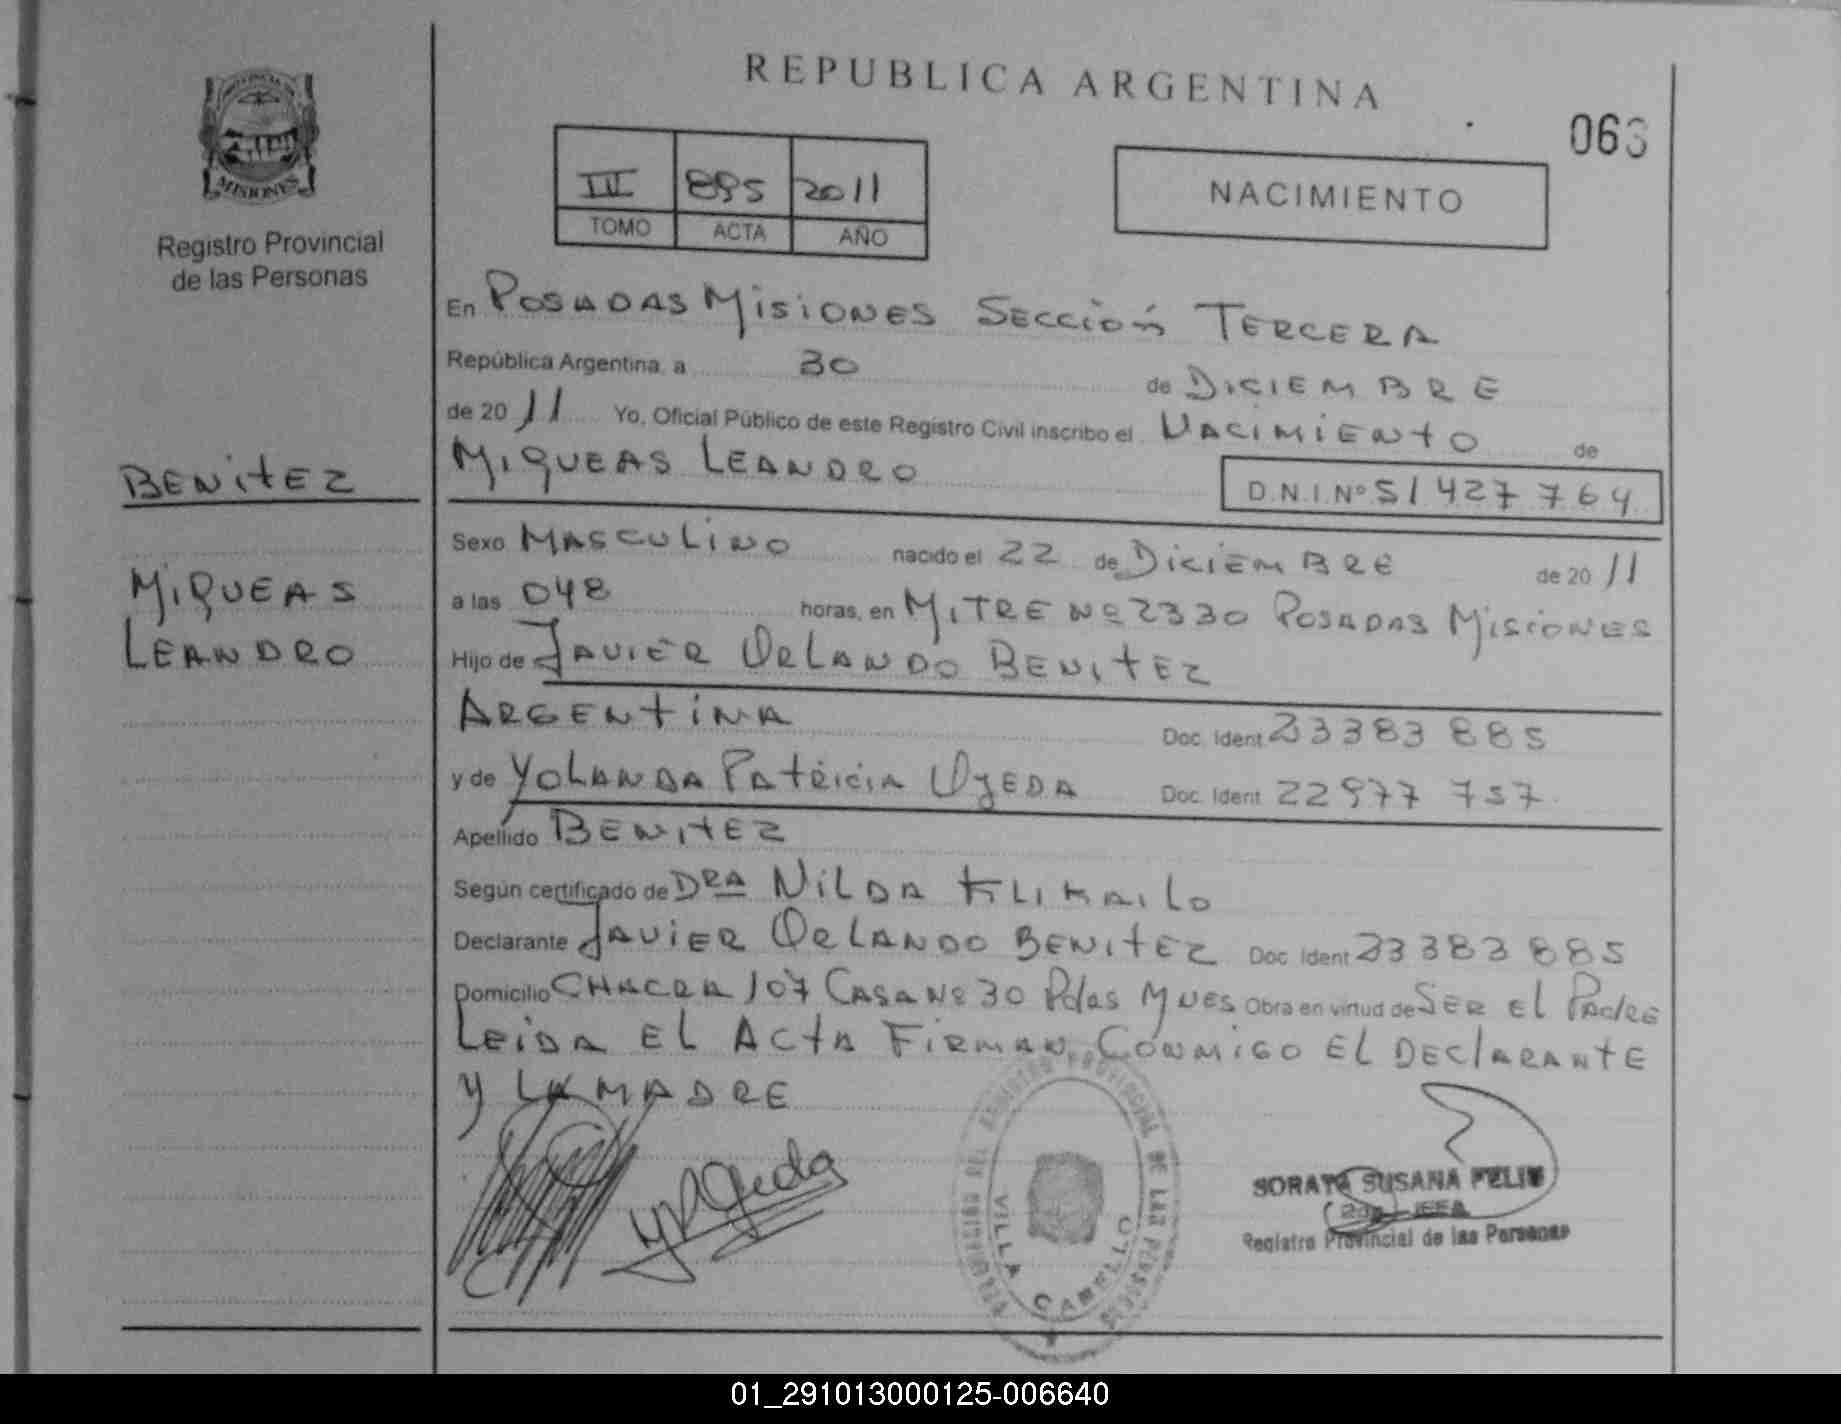 REPUBLICA ARGENTINA
063
MISIONES
Registro Provincial
de las Personas
III 895 2011
TOMO ACTA AÑO
NACIMIENTO
En POSADAS MISIONES SECCIÓN TERCERA
República Argentina, a 30 de DICIEMBRE
de 2011 Yo, Oficial Público de este Registro Civil inscribo el NACIMIENTO de
MIQUEAS LEANDRO D.N.I.Nº 51 427 764
BENITEZ
MIQUEAS
LEANDRO
Sexo MASCULINO nacido el 22 de DICIEMBRE de 2011
a las 048 horas, en MITRE Nº 2330 POSADAS MISIONES
Hijo de JAVIER ORLANDO BENITEZ
ARGENTINA Doc. Ident. 23383 885
y de YOLANDA PATRICIA OJEDA Doc. Ident. 22977 757
Apellido BENITEZ
Según certificado de DRA NILDA KLIKAILO
Declarante JAVIER ORLANDO BENITEZ Doc. Ident. 23 383 885
Domicilio CHACRA 107 CASA Nº 30 Pdas MNES Obra en virtud de SER El PAdRE
LEIDA EL ACTA FIRMAN CONMIGO EL DECLARANTE
Y LA MADRE
YPOjeda
REGISTRO PROVINCIAL DE LAS PERSONAS
VILLA CABELLO
SORATO SUSANA FELIW
JEFA
Registro Provincial de las Personas
01_291013000125-006640